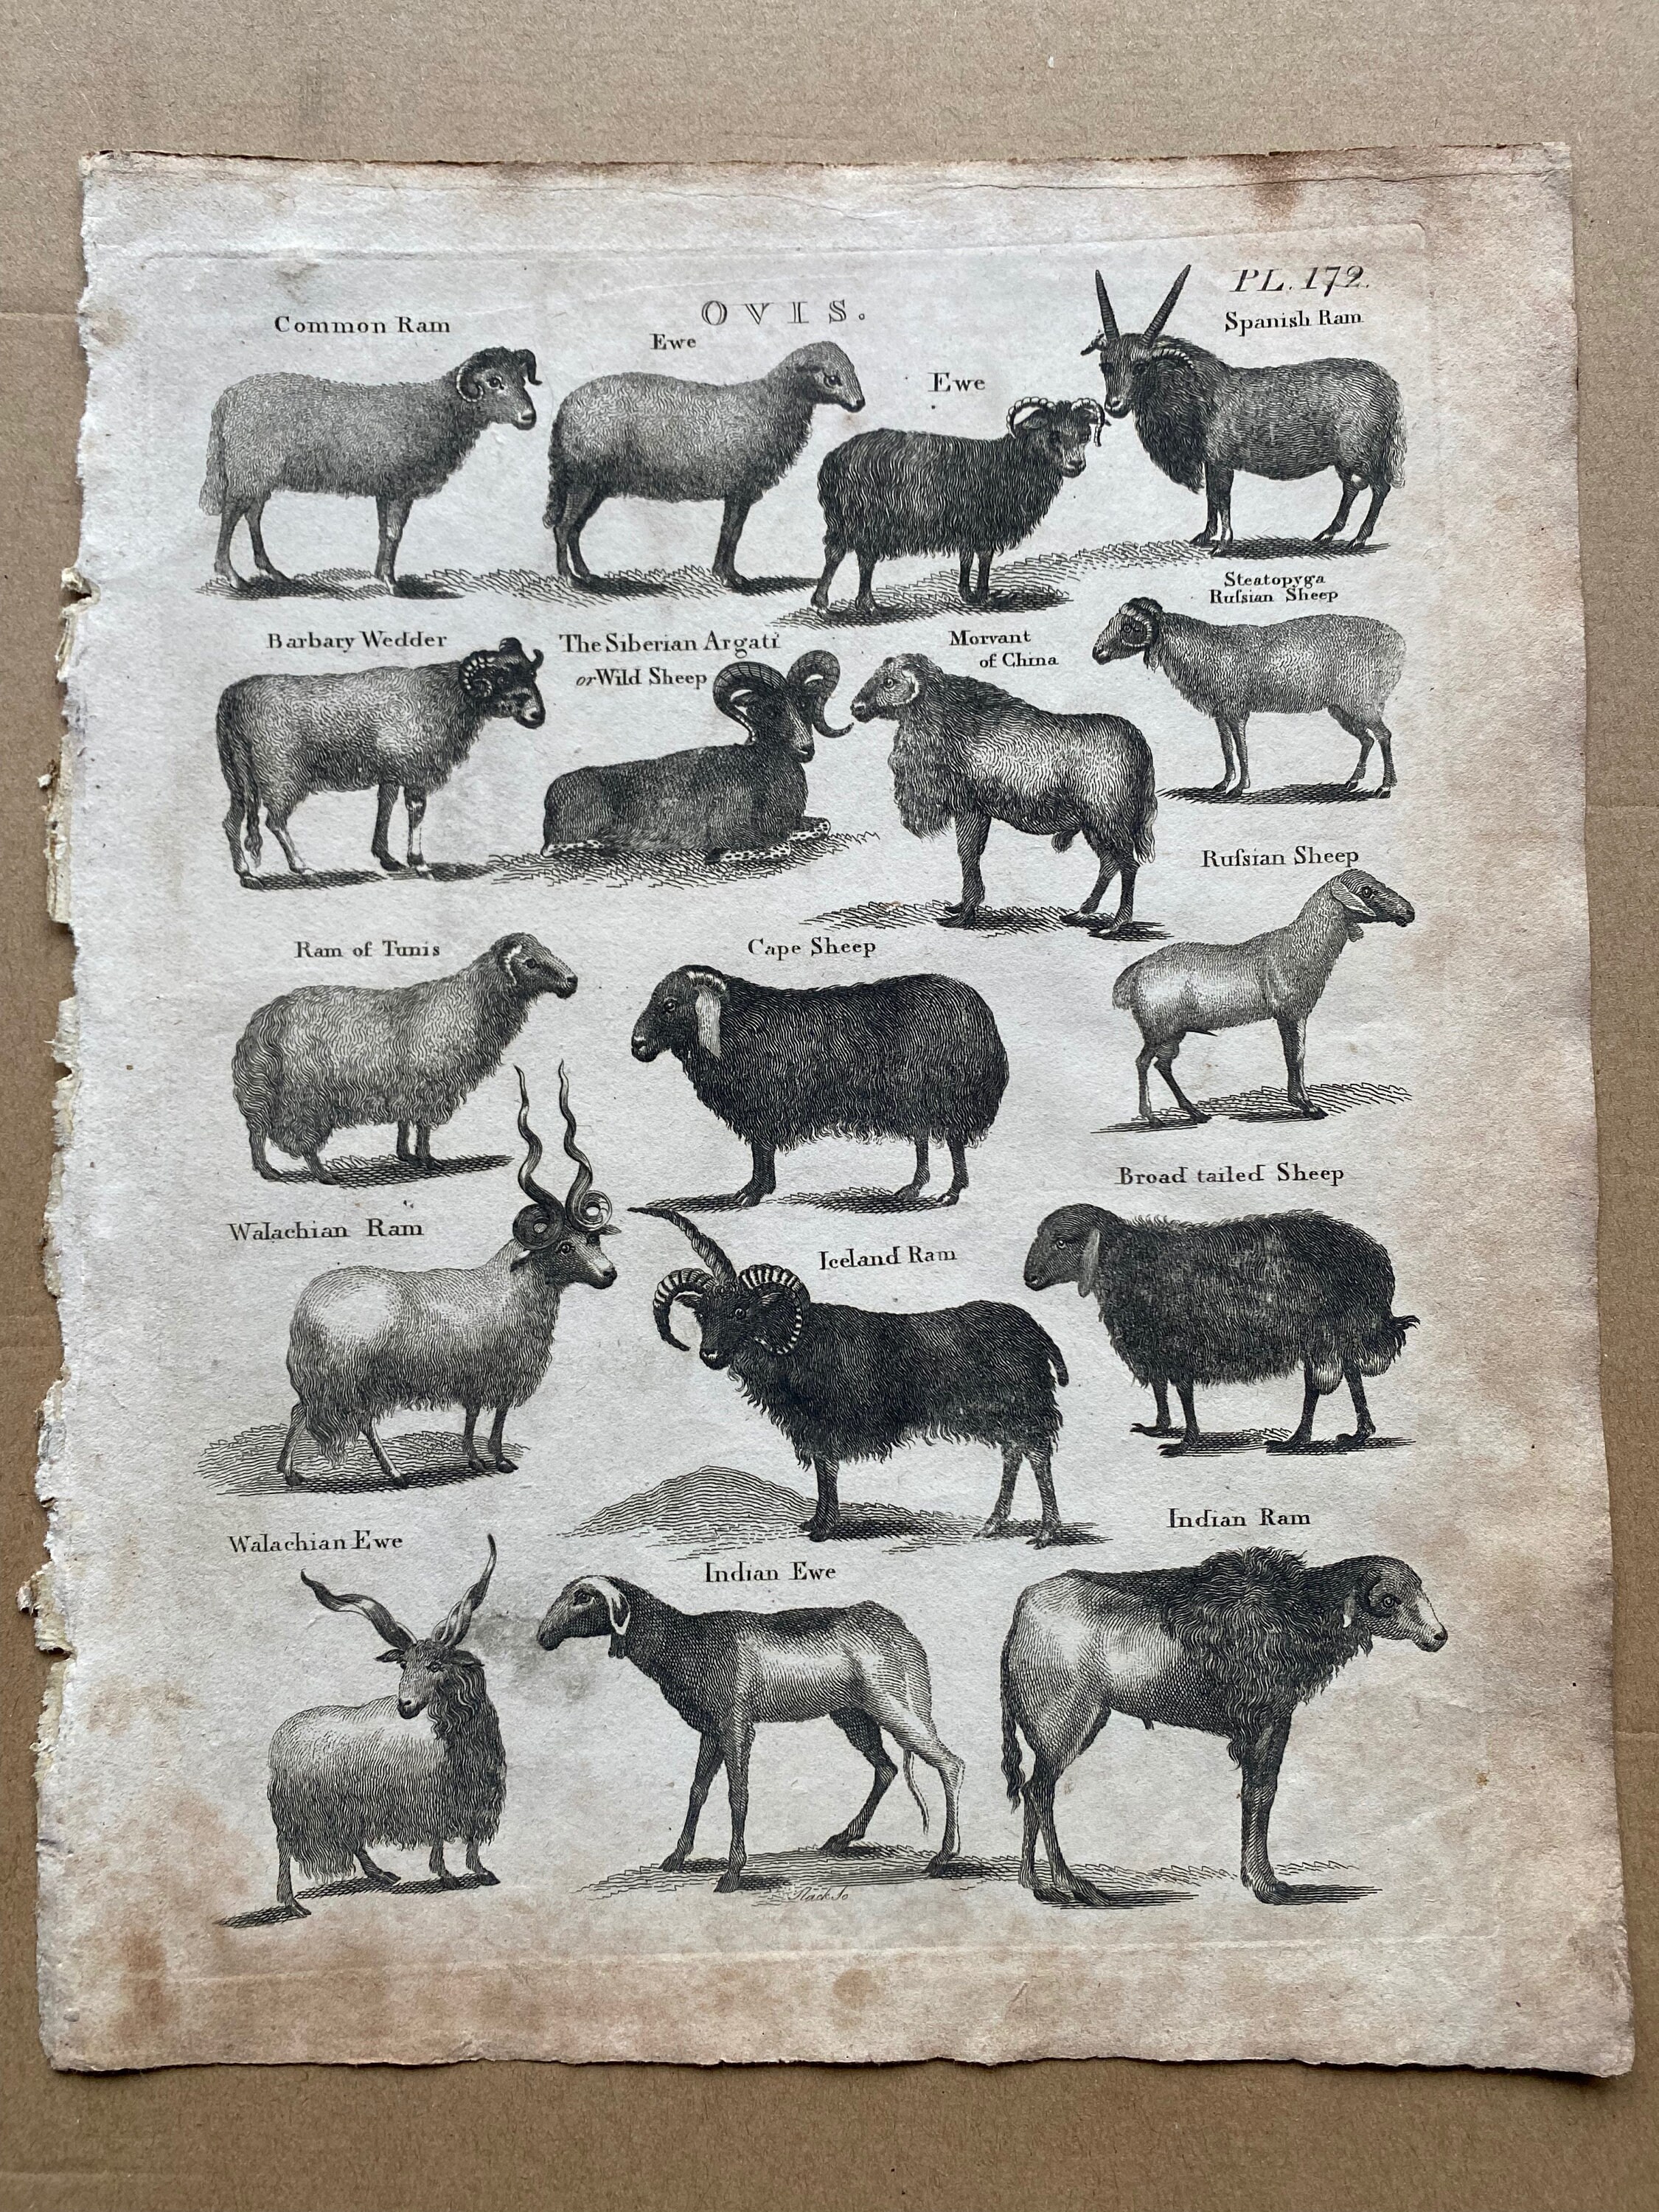 PL. 172.
OVIS.
Common Ram
Ewe
Ewe
Spanish Ram
Barbary Wedder
The Siberian Argati
or Wild Sheep
Morvant
of China
Steatopyga
Rufsian Sheep
Rufsian Sheep
Ram of Tunis
Cape Sheep
Broad tailed Sheep
Walachian Ram
Iceland Ram
Walachian Ewe
Indian Ewe
Indian Ram